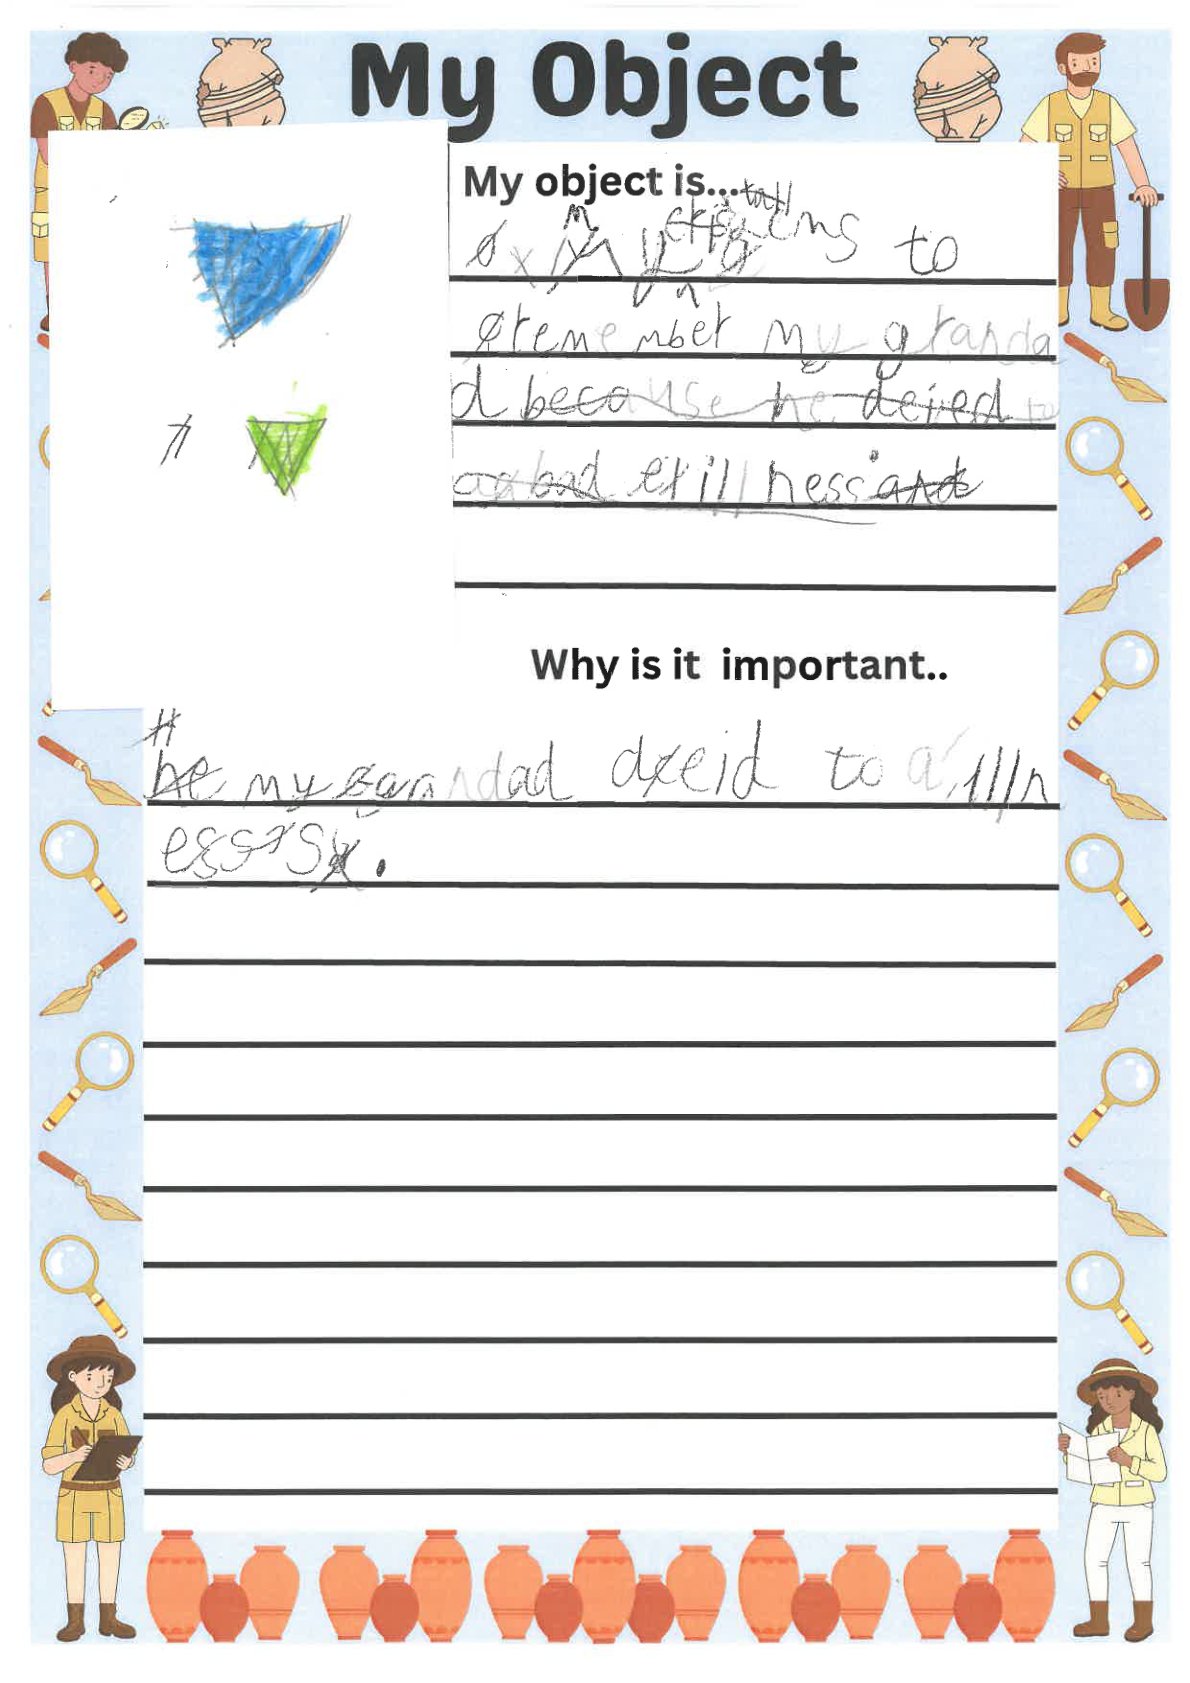 My Object
My object is...
to
remember my granda
d because he deied to
a bad illness and
Why is it important..
he my grandad deid to a illn
ess.